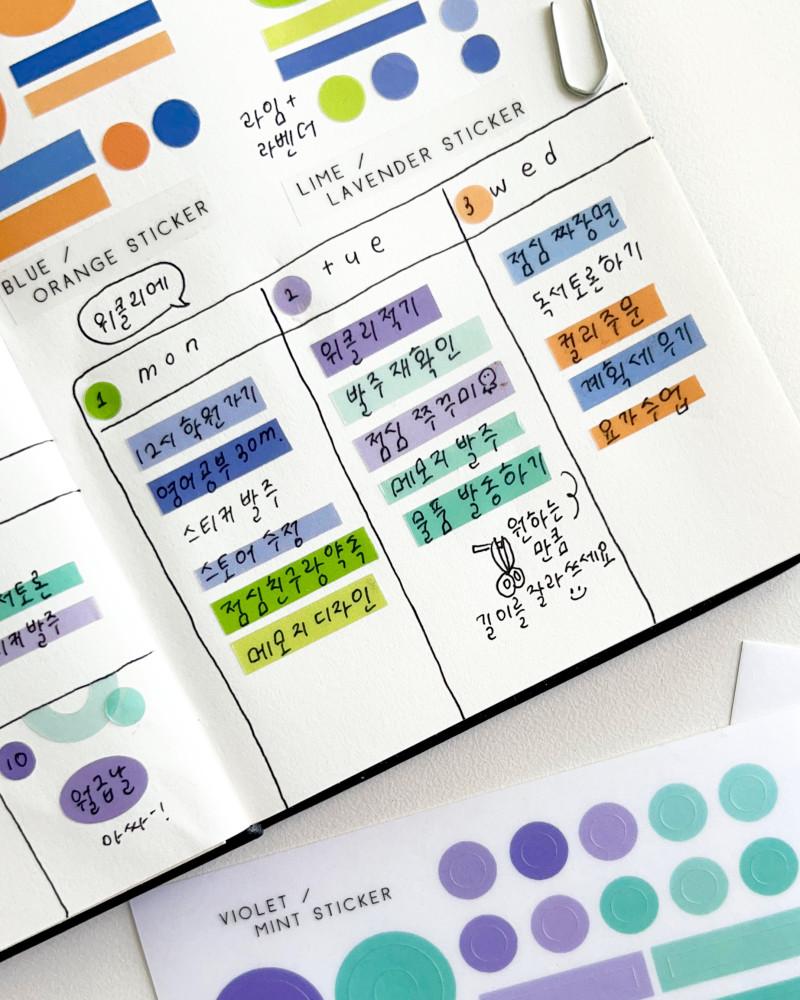 라임 +
라벤더
LIME /
LAVENDER STICKER
BLUE /
ORANGE STICKER
위클리에
1 mon
12시 학원가기
영어공부 30m.
스티커 발주
스토어 수정
점심친구랑약속
메모지 디자인
2 tue
위클리적기
발주 재확인
점심 쭈꾸미
메모지 발주
물품 발송하기
원하는
만큼
길이를 잘라쓰세요
3 wed
점심 짜장면
독서토론하기
컬리주문
계획세우기
요가수업
서토론
티커 발주
10
월급날
아싸-!
VIOLET /
MINT STICKER